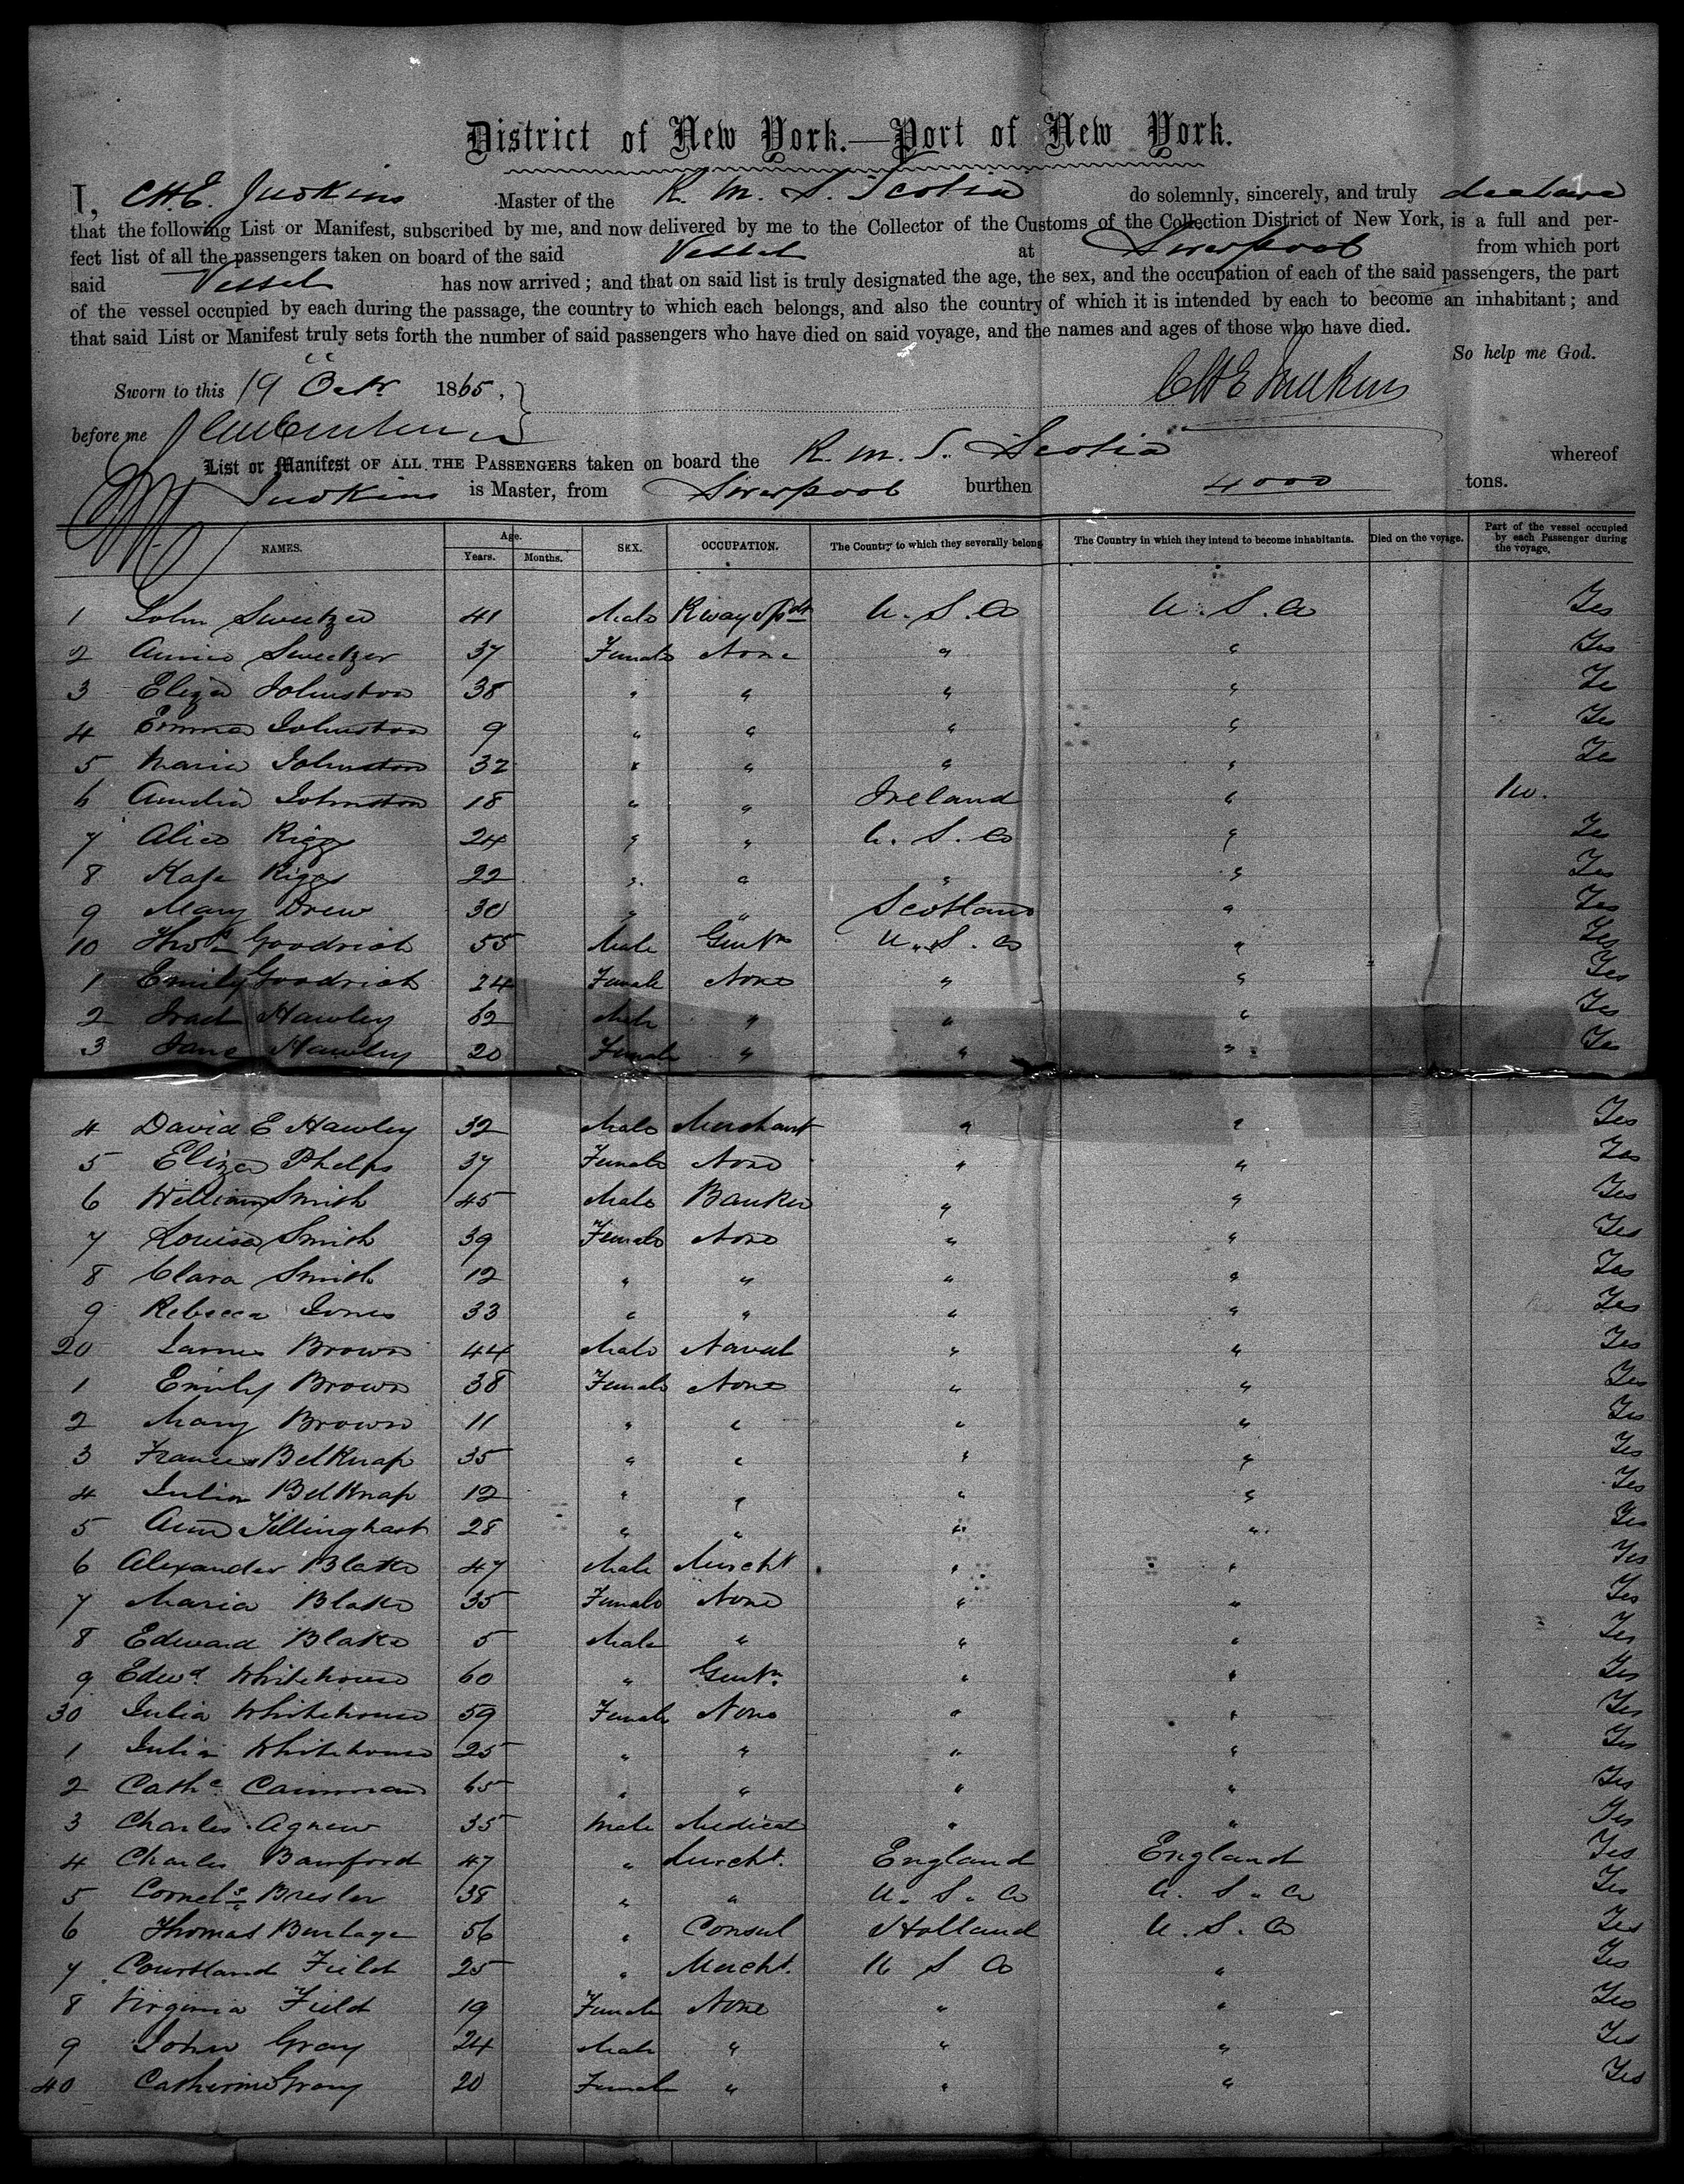 District of New York.—Port of New York.
I, C.H.E. Judkins Master of the R. M. S. Scotia do solemnly, sincerely, and truly declare
that the following List or Manifest, subscribed by me, and now delivered by me to the Collector of the Customs of the Collection District of New York, is a full and per-
fect list of all the passengers taken on board of the said Vessel at Liverpool from which port
said Vessel has now arrived; and that on said list is truly designated the age, the sex, and the occupation of each of the said passengers, the part
of the vessel occupied by each during the passage, the country to which each belongs, and also the country of which it is intended by each to become an inhabitant; and
that said List or Manifest truly sets forth the number of said passengers who have died on said voyage, and the names and ages of those who have died.
So help me God.
Sworn to this 19 Octr 1865, CHE Judkins
before me
List or Manifest OF ALL THE PASSENGERS taken on board the R. M. S. Scotia whereof
Judkins is Master, from Liverpool burthen 4000 tons.
NAMES. Age. Years. Months. SEX. OCCUPATION. The Country to which they severally belong The Country in which they intend to become inhabitants. Died on the voyage. Part of the vessel occupied by each Passenger during the voyage.
1 John Sweetzer 41 Male Rway Spdt U. S. A Yes U. S. A
2 Annie Sweetzer 37 Female None " " Yes
3 Eliza Johnston 38 " " " " Ye
4 Emma Johnston 9 " " " " Yes
5 Maria Johnston 32 " " " " Yes
6 Amelia Johnston 18 " " Ireland " No.
7 Alice Riggs 24 " " U. S. A " Ye
8 Kate Riggs 22 " " " " Yes
9 Mary Drew 30 " " Scotland " Yes
10 Thos Goodrich 55 Male Gentn U. S. A " Yes
1 Emily Goodrich 24 Female None " " Yes
2 Irad Hawley 62 Male " " " Yes
3 Jane Hawley 20 Female " " " Yes
4 David E Hawley 32 Male Merchant " " Yes
5 Eliza Phelps 37 Female None " " Yes
6 William Smith 45 Male Banker " " Yes
7 Louisa Smith 39 Female None " " Yes
8 Clara Smith 12 " " " " Yes
9 Rebecca Jones 33 " " " " Yes
20 James Brown 44 Male Naval " " Yes
1 Emily Brown 38 Female None " " Yes
2 Mary Brown 11 " " " " Yes
3 Frances BelKnap 35 " " " " Yes
4 Julia BelKnap 12 " " " " Yes
5 Ann Tillinghast 28 " " " " Yes
6 Alexander Blake 47 Male Mercht " " Yes
7 Maria Blake 35 Female None " " Yes
8 Edward Blake 5 Male " " " Yes
9 Edwd Whitehouse 60 " Gentn. " " Yes
30 Julia Whitehouse 59 Female None " " Yes
1 Julia Whitehouse 25 " " " " Yes
2 Cathe Cammann 65 " " " " Yes
3 Charles Agnew 35 Male Medical " " Yes
4 Charles Bamford 47 " Mercht. England England Yes
5 Cornels Bresler 38 " " U. S. A U. S. A Yes
6 Thomas Burlage 56 " Consul Holland U. S. A Yes
7 Courtland Field 25 " Mercht. U S A " Yes
8 Virginia Field 19 Female None " " Yes
9 John Gray 24 Male " " " Yes
40 Catherine Gray 20 Female " " " Yes